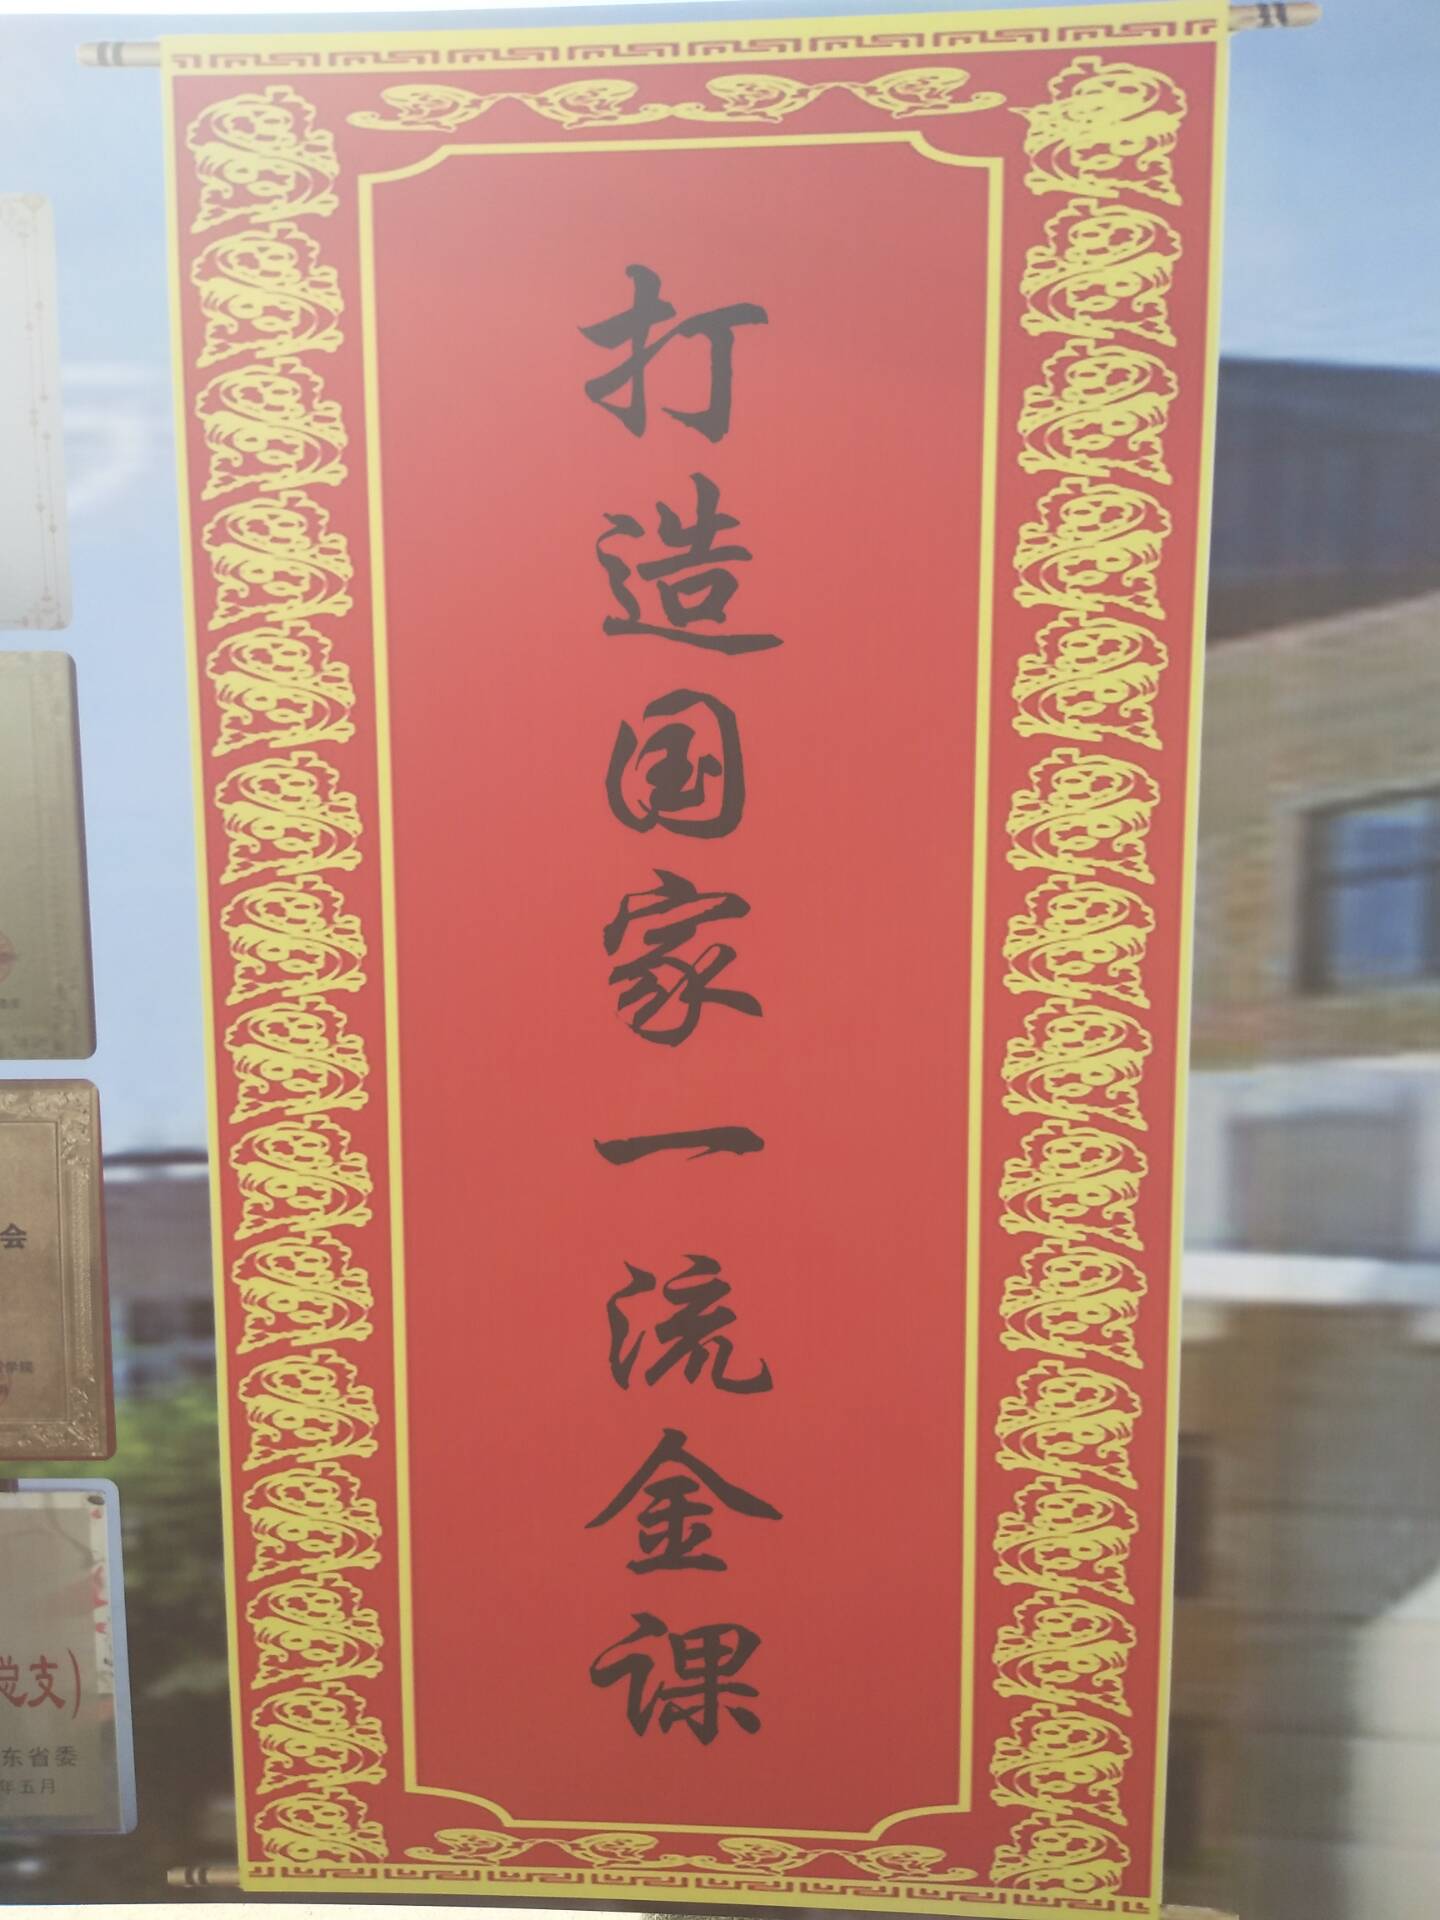 打造国家一流金课
会
学院
总支）
东省委
年五月